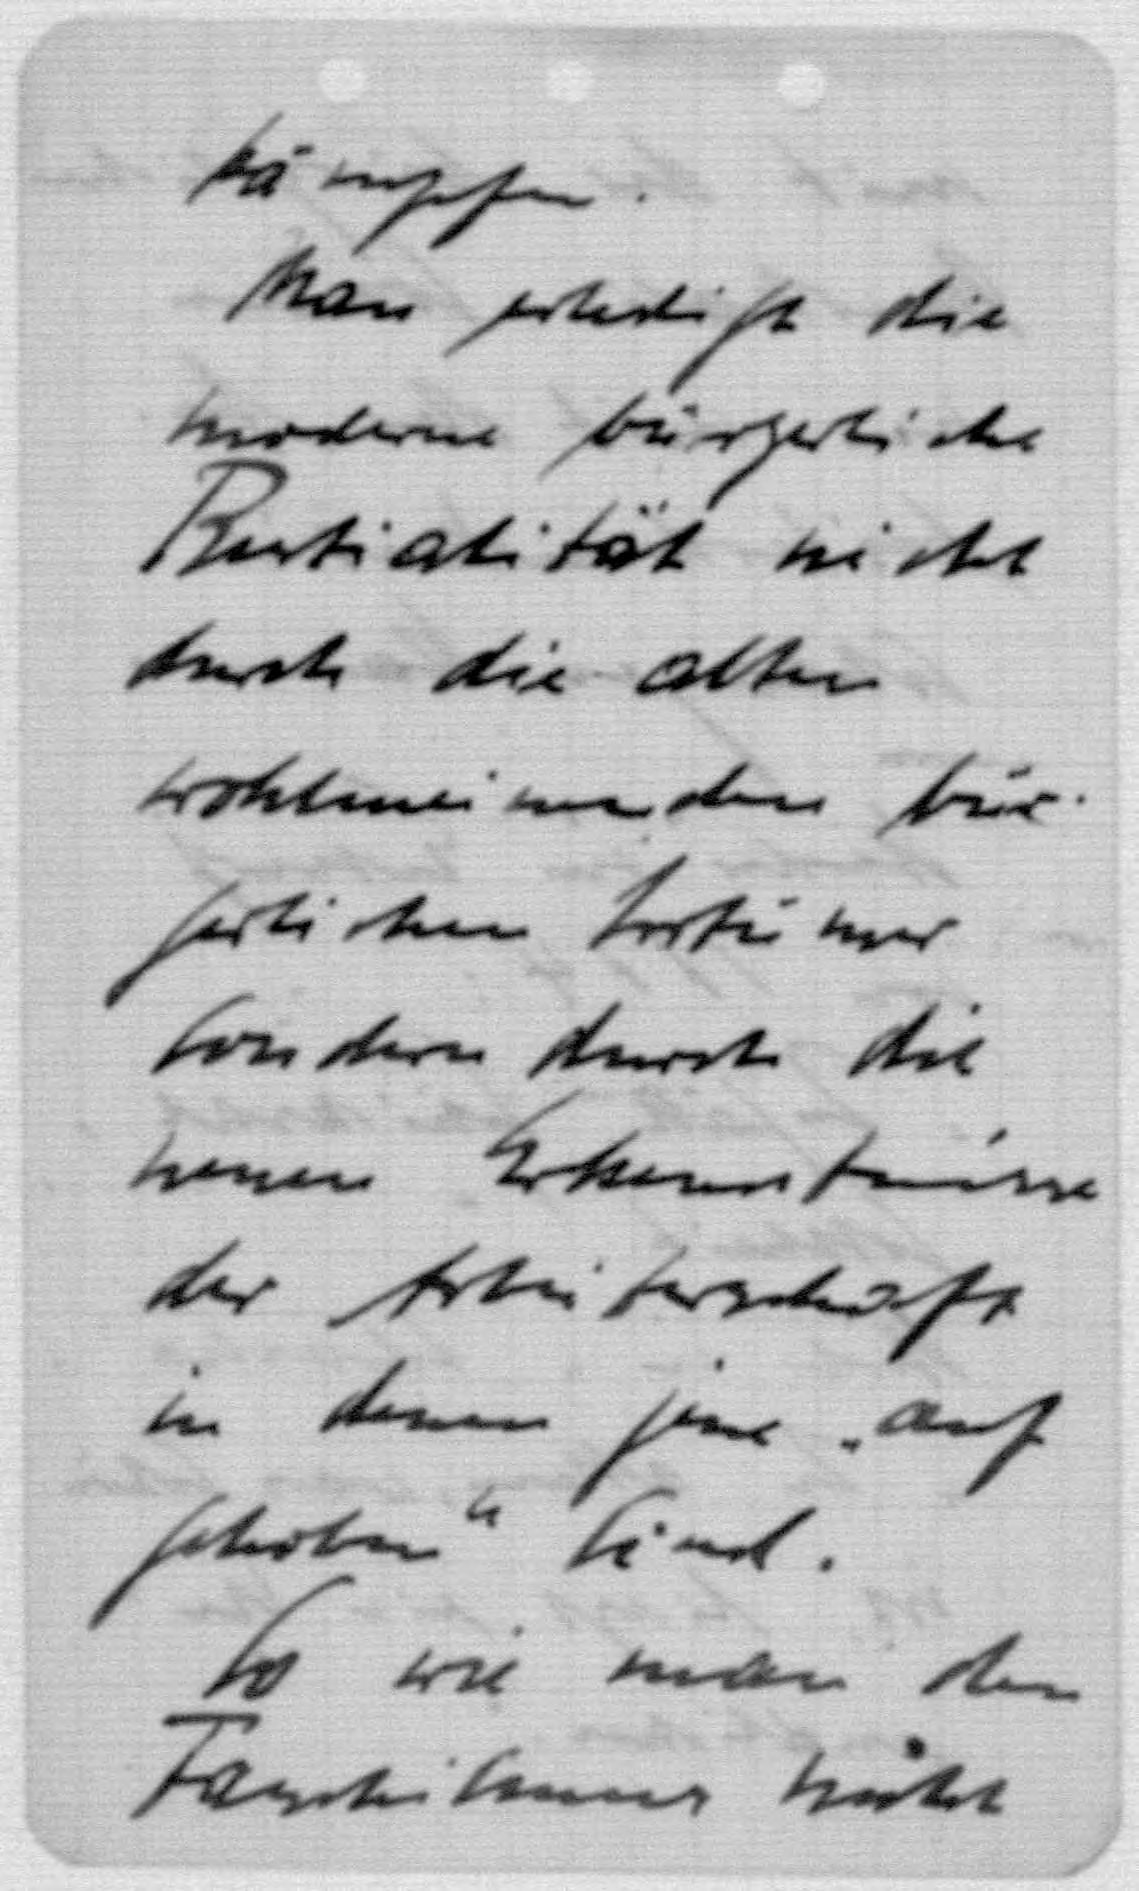 kämpfen.
Man erledigt die
moderne bürgerliche
Bestialität nicht
durch die alten
wohlmeinenden bür-
gerlichen Irrtümer
sondern durch die
neuen Erkenntnisse
der Arbeiterschaft
in denen jene „auf
gehoben“ sind.
So wie man den
Faschismus nicht